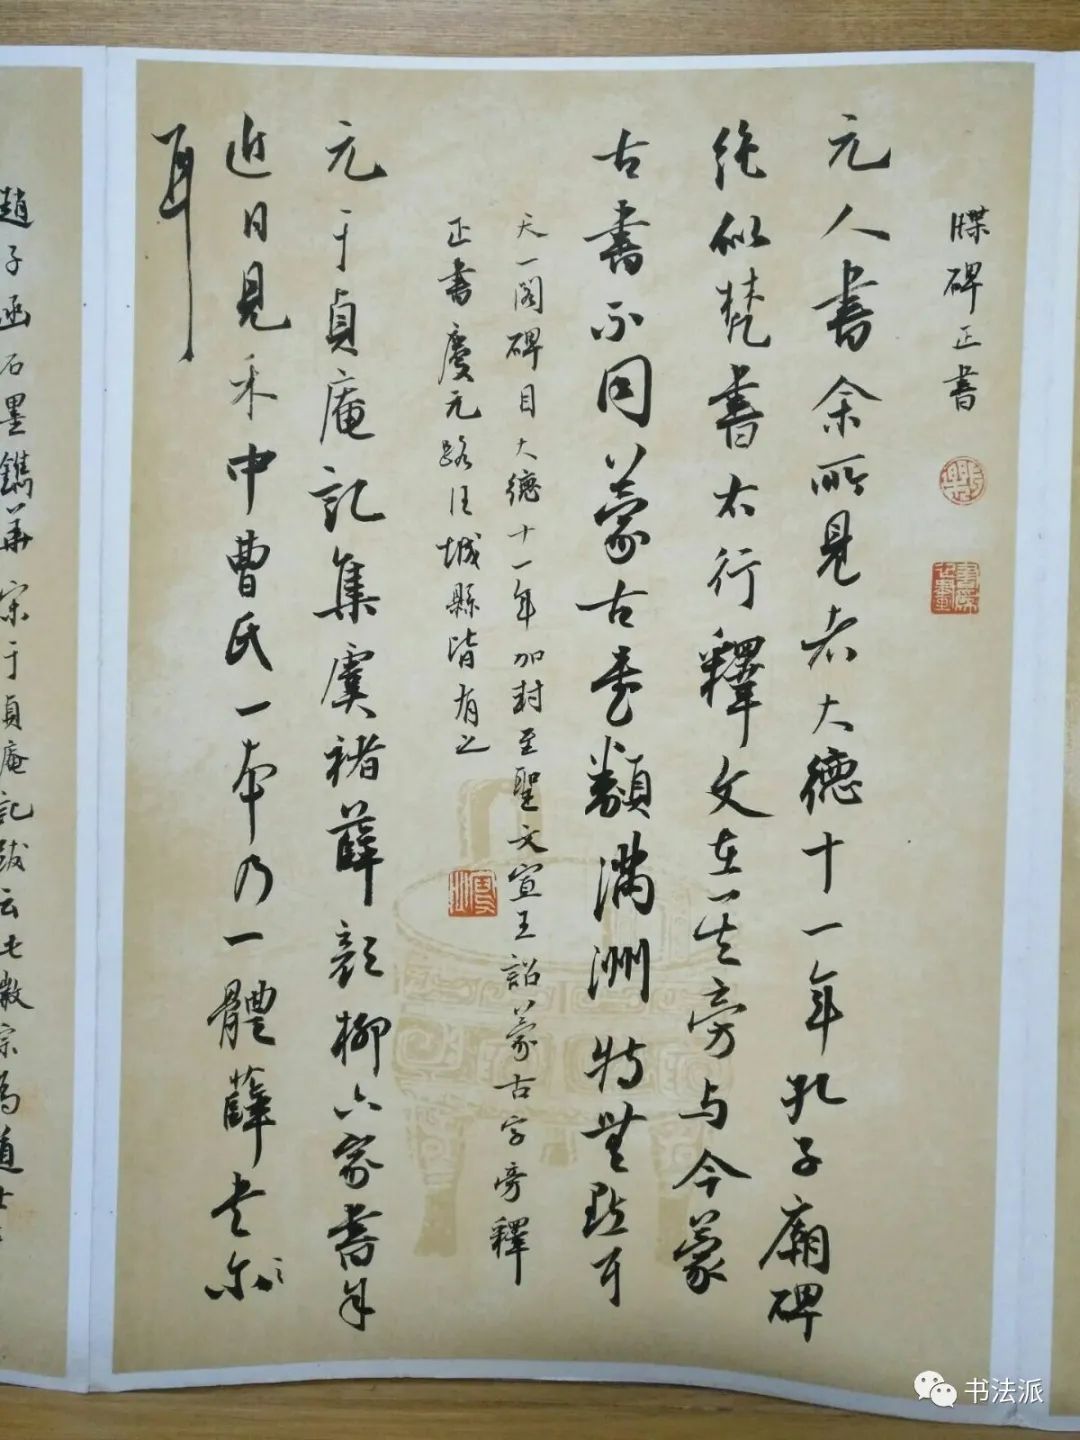 牒碑正書
元人書余所見者大德十一年孔子廟碑
絶似梵書右行釋文在其旁与今蒙
古書不同蒙古書類滿洲特無點耳
天一閣碑目大德十一年加封至聖文宣王詔蒙古字旁釋
正書慶元路任城縣皆有之
元于貞庵記集虞褚薛顏柳六家書耳
近日見禾中曹氏一本乃一體薛書尔
耳
趙子函石墨鐫華宋于貞庵記跋云七數宗為道士
书法派